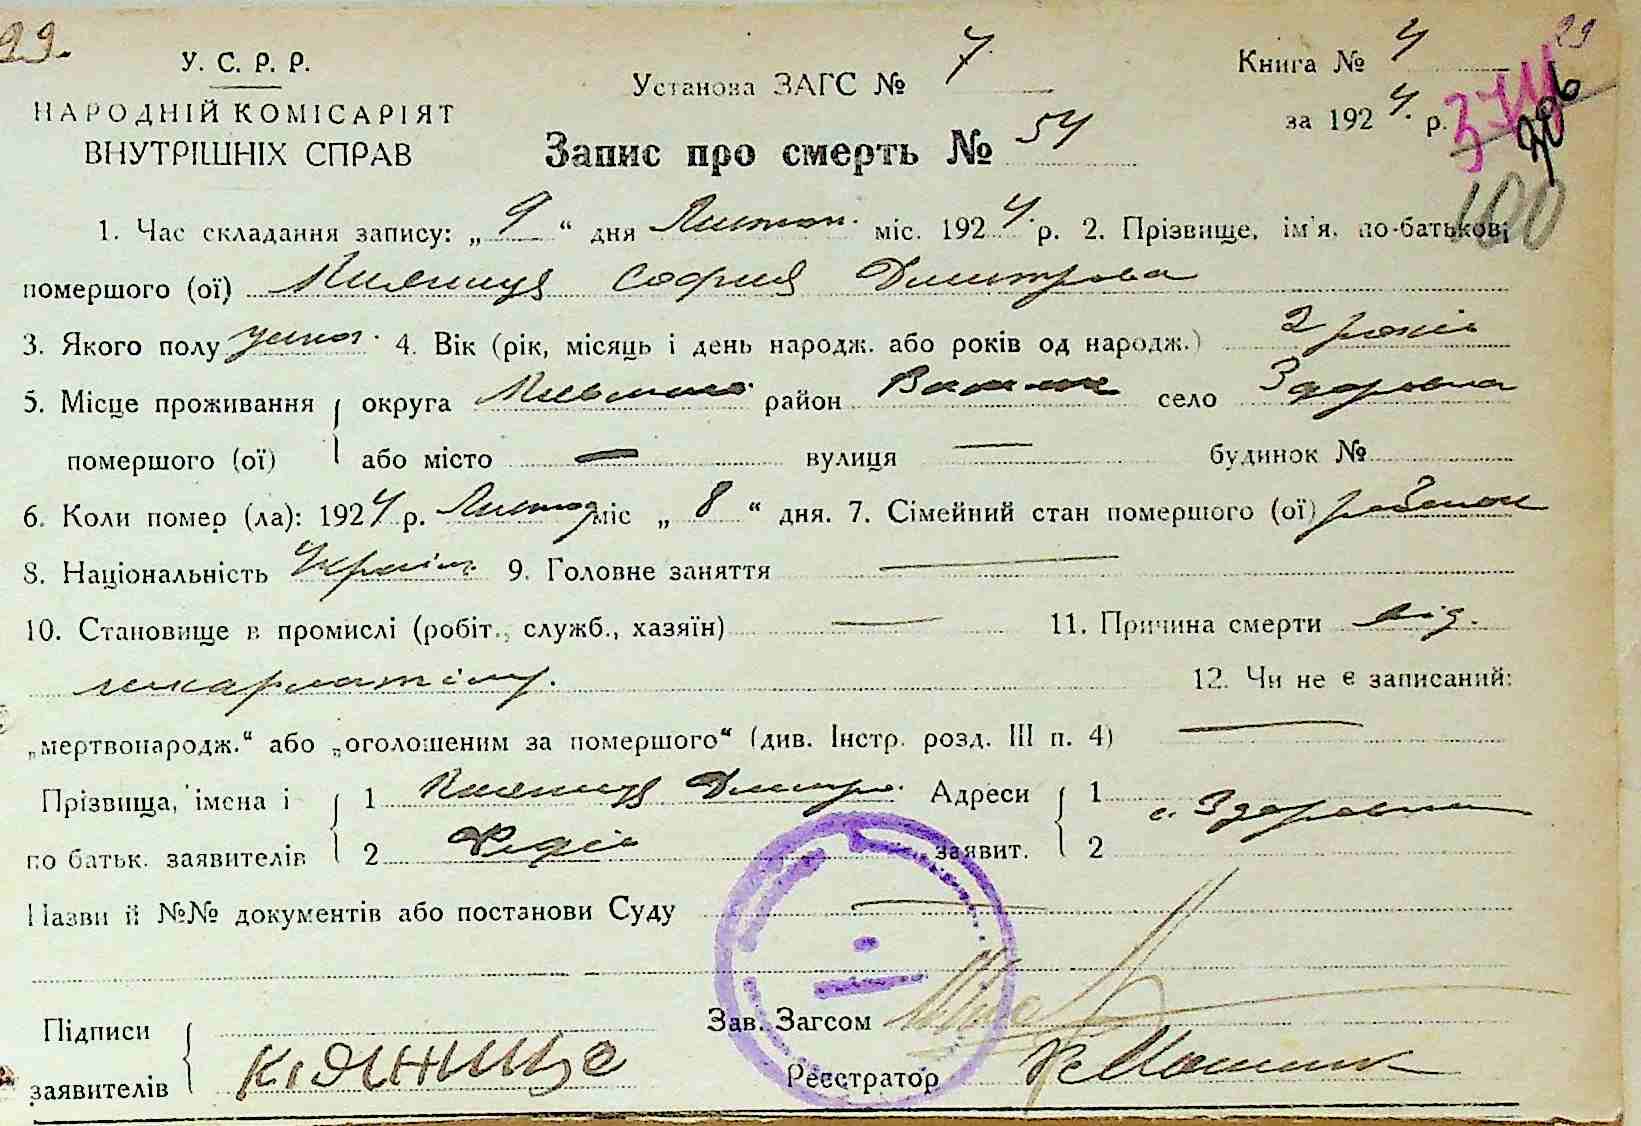 29.
29
У. С. Р. Р.
НАРОДНІЙ КОМІСАРІЯТ
ВНУТРІШНІХ СПРАВ
Установа ЗАГС № 7
Книга № 4
за 1924 р.
100
Запис про смерть № 54
1. Час складання запису: „9“ дня Листоп. міс. 1924 р. 2. Прізвище, ім'я, по-батькові
помершого (ої) Кияниця София Дмитрова
3. Якого полу жіноч. 4. Вік (рік, місяць і день народж. або років од народж.) 2 років
5. Місце проживання округа район село Здоровка
помершого (ої) або місто — вулиця — будинок №
6. Коли помер (ла): 1924 р. Листоп міс „8“ дня. 7. Сімейний стан помершого (ої)
8. Національність Україн. 9. Головне заняття —
10. Становище в промислі (робіт., служб., хазяїн) — 11. Причина смерти від.
шкарлатіну. 12. Чи не є записаний:
„мертвонародж.“ або „оголошеним за помершого“ (див. Інстр. розд. III п. 4) —
Прізвища, імена і 1 Кияниця Дмитро Адреси 1 с. Здоровка
по батьк. заявителів 2 заявит. 2
Назви й №№ документів або постанови Суду —
Підписи
заявителів Кіянице
Зав. Загсом
Реєстратор